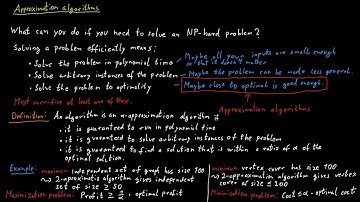 Approximation algorithms
What can you do if you need to solve an NP-hard problem?
Solving a problem efficiently means:
• Solve the problem in polynomial time
Maybe all your inputs are small enough so that it doesn't matter
• Solve arbitrary instances of the problem
Maybe the problem can be made less general.
• Solve the problem to optimality
Maybe close to optimal is good enough.
Must sacrifice at least one of these.
Approximation algorithms
Definition: An algorithm is an α-approximation algorithm if
• it is guaranteed to run in polynomial time
• it is guaranteed to solve arbitrary instances of the problem
• it is guaranteed to find a solution that is within a ratio of α of the
optimal solution.
Example: maximum independent set of graph has size 100
2-approximation algorithm gives independent
set of size ≥ 50
Maximization problem: Profit ≥ 1/α · optimal profit
minimum vertex cover has size 100
2-approximation algorithm gives vertex
cover of size ≤
Minimization problem: Cost ≤ α · optimal cost